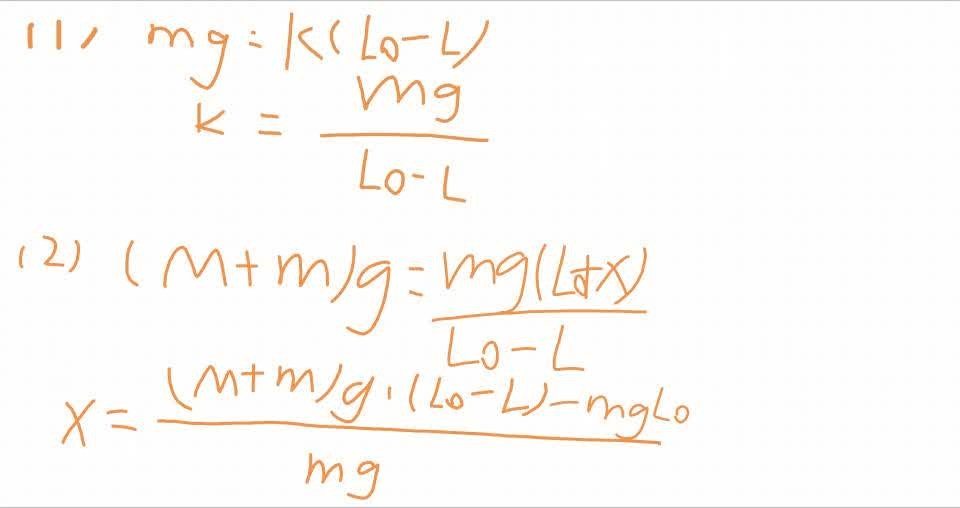 (1) mg = k(L0-L)
k = mg / L0-L
(2) (M+m)g = mg(L0+x) / L0-L
x = (M+m)g·(L0-L)-mgL0 / mg